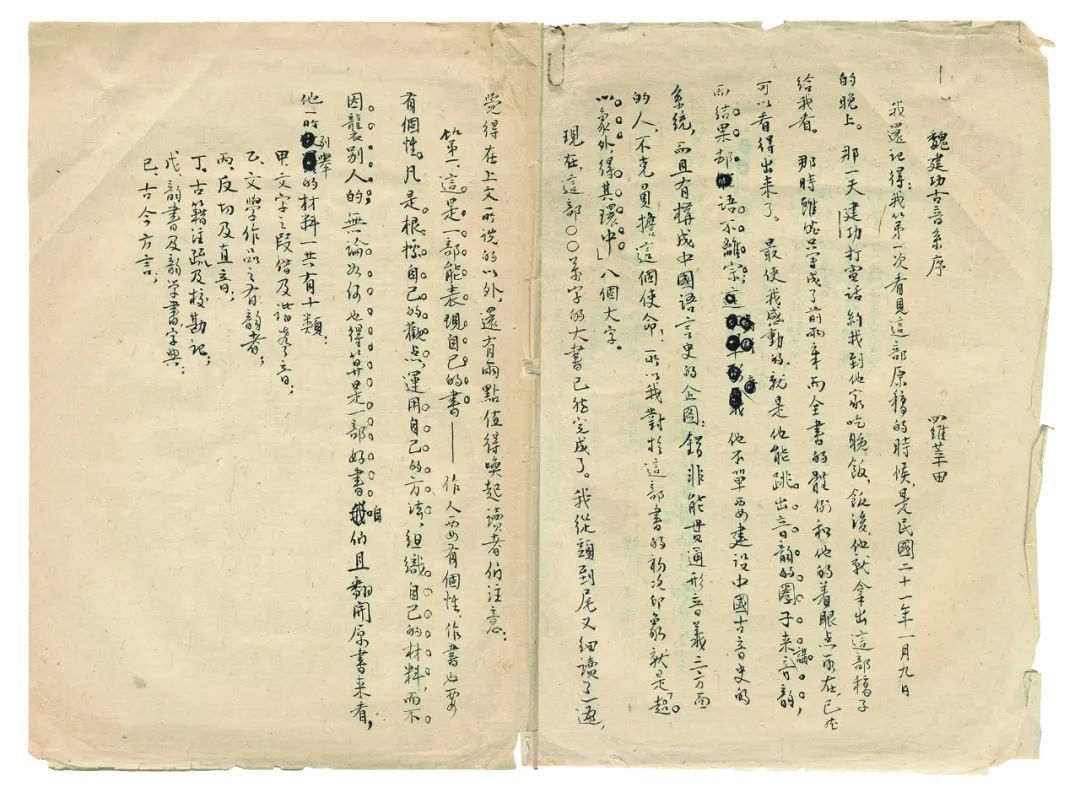 魏建功古音系序
羅莘田
我還記得：我第一次看見這部原稿的時候，是民國二十一年一月九日
的晚上。那一天建功打電話約我到他家吃晚飯，飯後他就拿出這部稿子
給我看。那時雖然只寫成了前兩章而全書的體例和他的着眼点所在已然
可以看得出來了。最使我感動的就是他能跳出音韵的圈子来講音韵，
而結果却語不離宗。他不單要建設中國古音史的
系統，而且有構成中國語言史的企圖：錯非能贯通形音義三方面
的人，不克負擔這個使命，所以我對於這部書的初次印象就是「超
以象外，得其環中」八個大字。
現在，這部○○萬字的大書已然完成了。我從頭到尾又細讀了一遍，
覺得在上文所說的以外，還有兩點值得喚起讀者们注意：
第一，這是一部能表現自己的書——作人要有個性，作書也要
有個性。凡是根據自己的觀点，運用自己的方法，組織自己的材料，而不
因襲别人的，無論如何也得算是一部好書。咱们且翻開原書来看，
他所列舉的材料一共有十類：
甲、文字之叚借及諧聲音；
乙、文學作品之有韵者；
丙、反切及直音；
丁、古籍注疏及校勘記；
戊、韵書及韵學書字典；
已、古今方言；